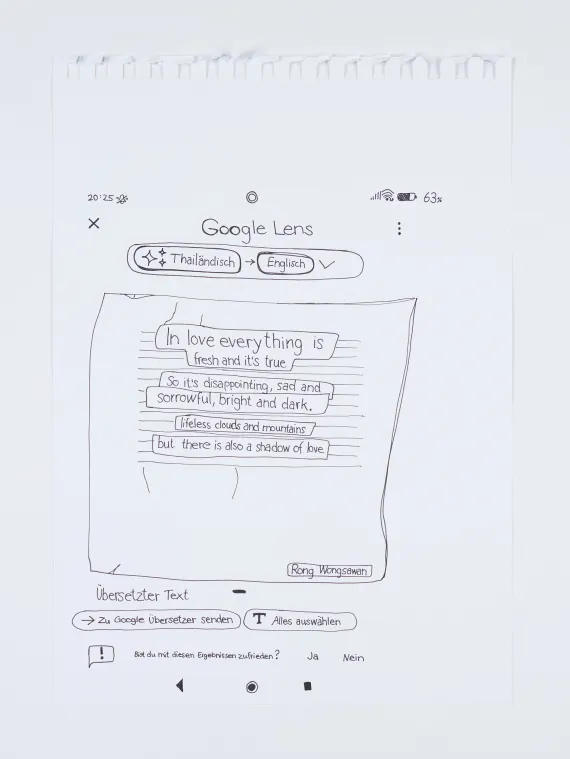 20:25
63%
Google Lens
Thailändisch → Englisch
In love everything is
fresh and it's true
So it's disappointing, sad and
sorrowful, bright and dark.
lifeless clouds and mountains
but there is also a shadow of love
Rong Wongsawan
Übersetzter Text
→ Zu Google Übersetzer senden
T Alles auswählen
! Bist du mit diesen Ergebnissen zufrieden? Ja Nein